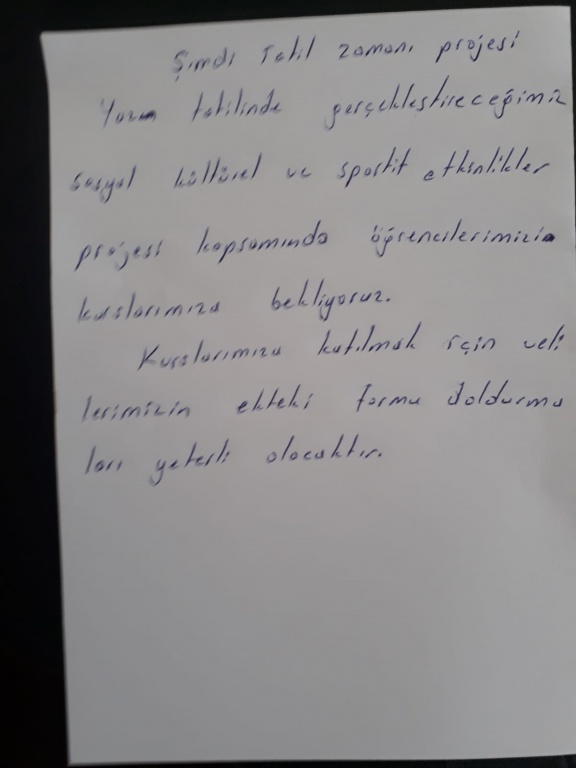 Şimdi Tatil zamanı projesi
Yazın tatilinde gerçekleştireceğimiz
sosyal kültürel ve sportif etkinlikler
projesi kapsamında öğrencilerimizin
kurslarımıza bekliyoruz.
Kurslarımıza katılmak için veli
lerimizin ekteki formu doldurma
ları yeterli olacaktır.